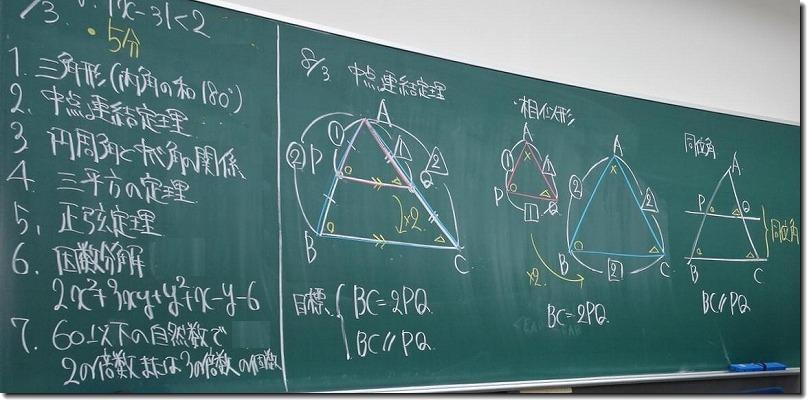 |x-3|<2
・5分
1. 三角形(内角の和180°)
2. 中点連結定理
3. 円周角と中心角の関係
4. 三平方の定理
5. 正弦定理
6. 因数分解
2x²+3xy+y²+x-y-6
7. 60以下の自然数で
2の倍数または3の倍数の個数
8/3 中点連結定理
A
①
②
P
1
2
Q
×2
B
C
目標
BC=2PQ
BC//PQ
・相似形
A
①
P
1
Q
×2
A
②
2
B
2
C
BC=2PQ
同位角
A
P
Q
B
C
同位角
BC//PQ